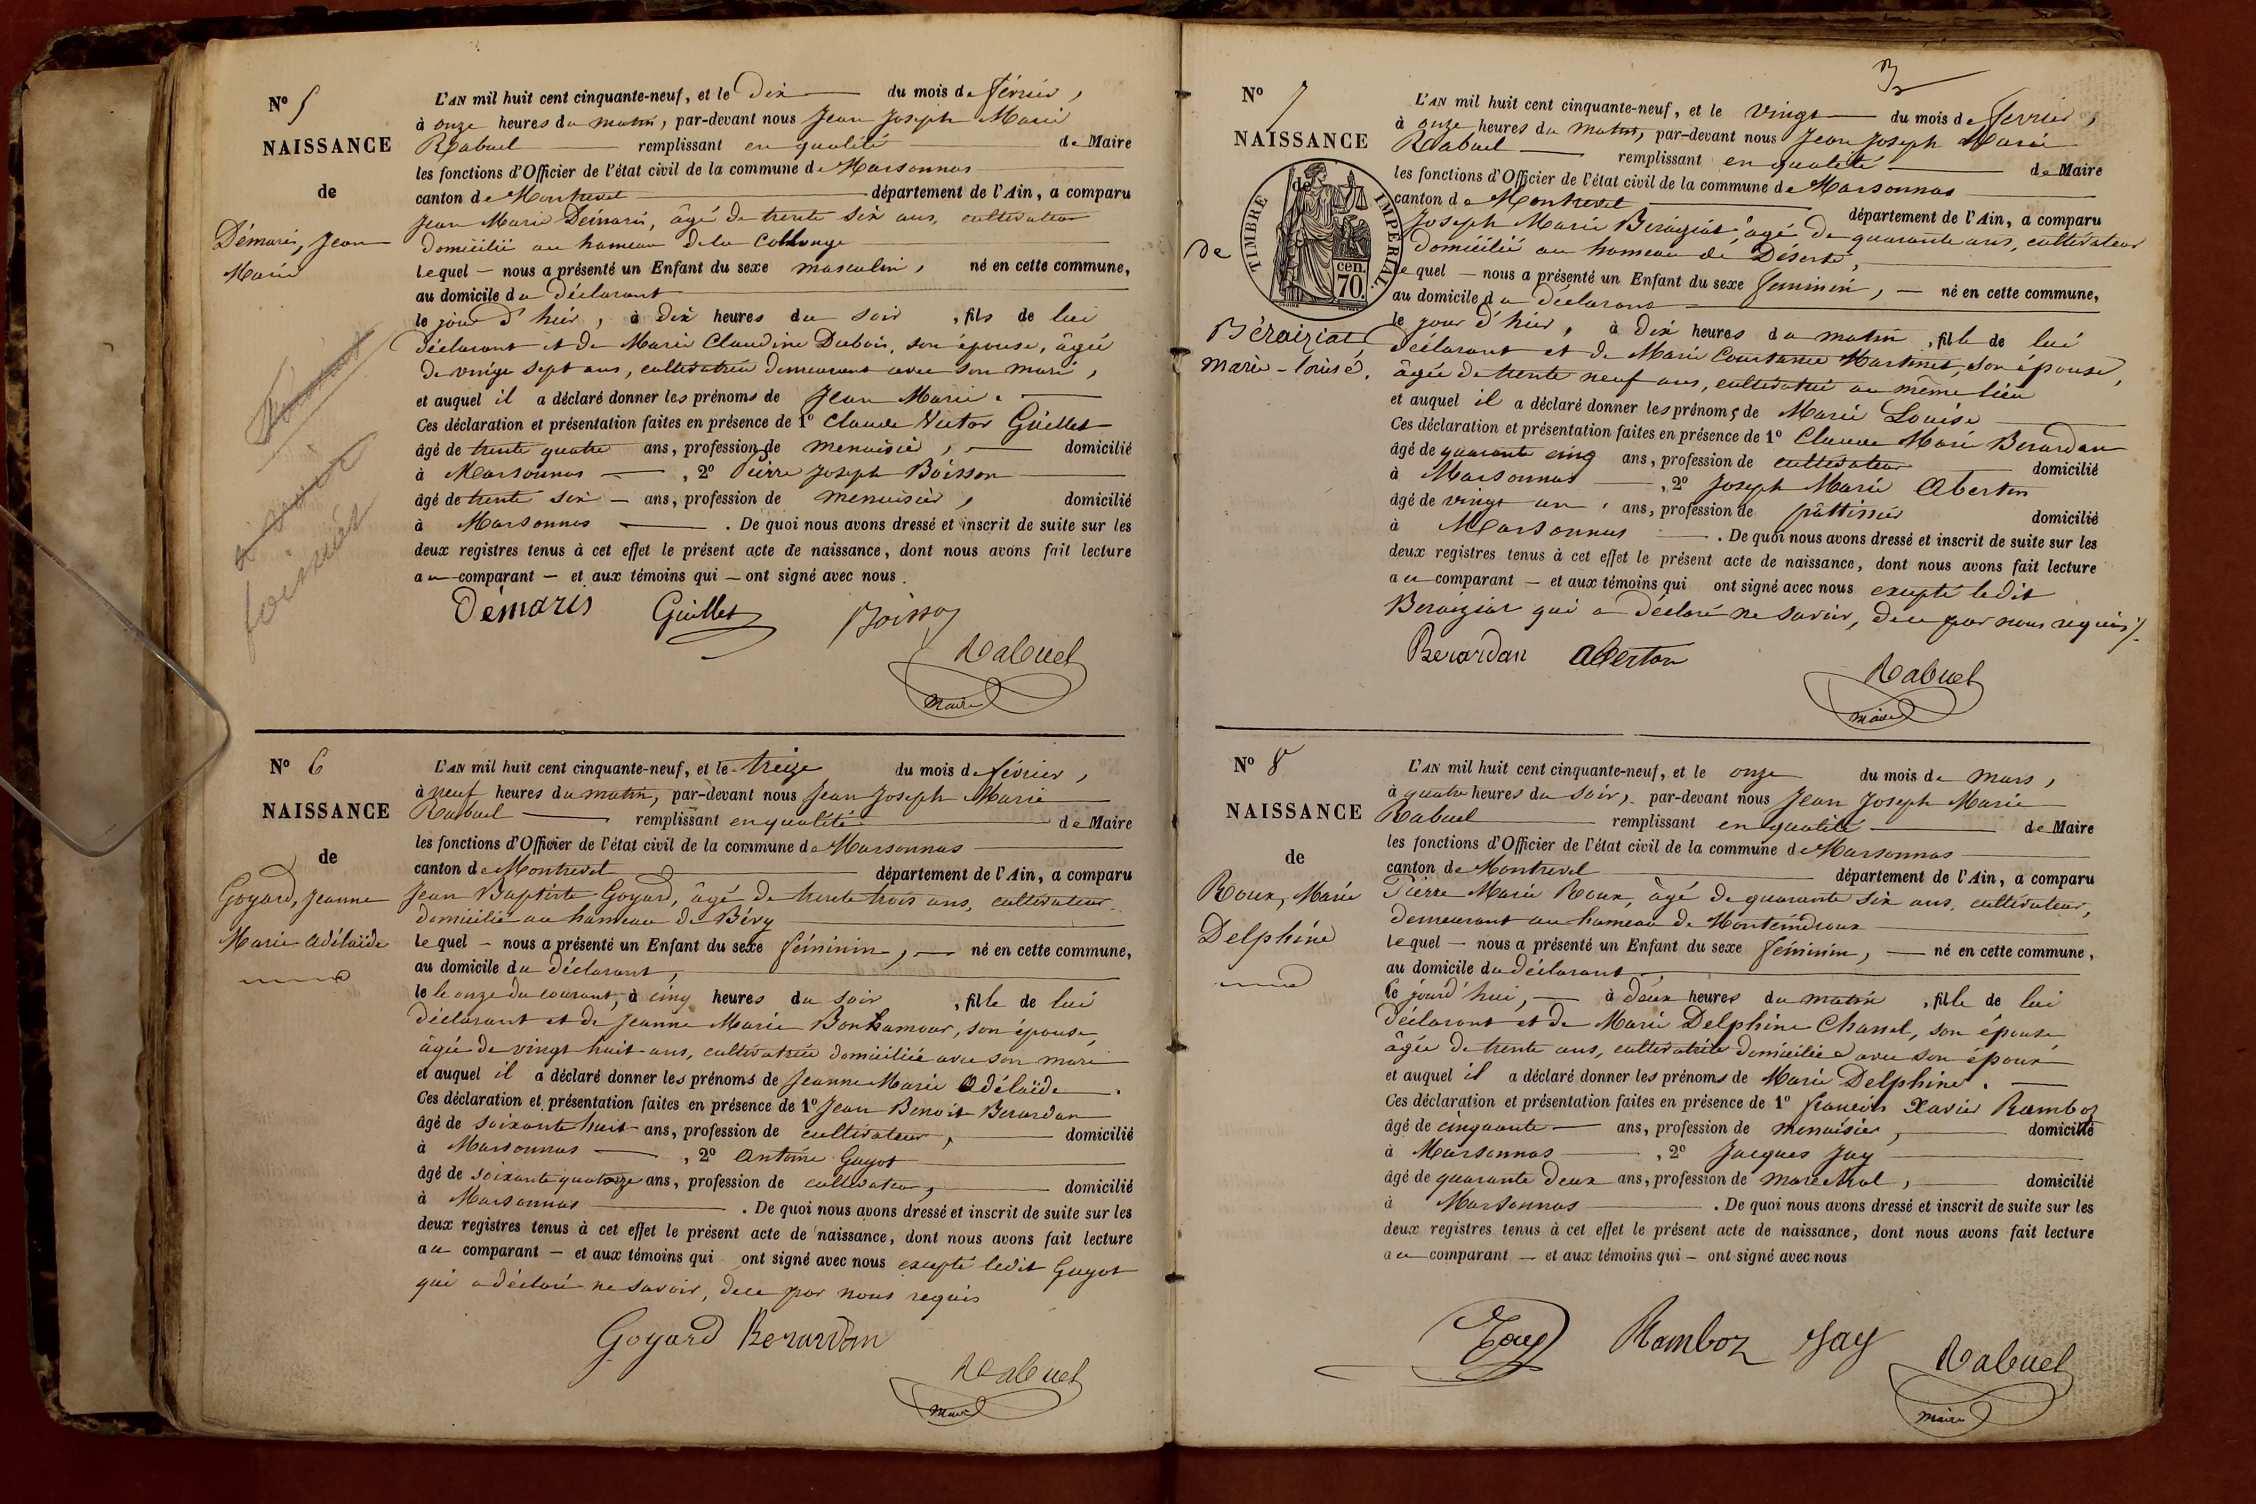 Nº 5
NAISSANCE
de
Démaris, Jean
Marie
L'AN mil huit cent cinquante-neuf, et le Dix du mois de février,
à onze heures du matin, par-devant nous Jean Joseph Marie
Rabuel remplissant en qualité de Maire
les fonctions d'Officier de l'état civil de la commune de Marsonnas
canton de Montrevel département de l'Ain, a comparu
Jean Marie Démaris, âgé de trente six ans, cultivateur
domicilié au hameau de la Collonge
lequel — nous a présenté un Enfant du sexe masculin, né en cette commune,
au domicile du déclarant
le jour d'hier, à dix heures du soir, fils de lui
déclarant et de Marie Claudine Dubois, son épouse, âgée
de vingt sept ans, cultivatrice demeurant avec son mari,
et auquel il a déclaré donner les prénoms de Jean Marie.
Ces déclaration et présentation faites en présence de 1º Claude Victor Guillet
âgé de trente quatre ans, profession de menuisier, domicilié
à Marsonnas, 2º Pierre Joseph Boisson
âgé de trente six — ans, profession de menuisier, domicilié
à Marsonnas. De quoi nous avons dressé et inscrit de suite sur les
deux registres tenus à cet effet le présent acte de naissance, dont nous avons fait lecture
au comparant — et aux témoins qui — ont signé avec nous.
Démaris Guillet Boisson
Rabuel
Maire
Nº 6
NAISSANCE
de
Goyard, Jeanne
Marie Adélaïde
L'AN mil huit cent cinquante-neuf, et le treize du mois de février,
à neuf heures du matin, par-devant nous Jean Joseph Marie
Rabuel remplissant en qualité de Maire
les fonctions d'Officier de l'état civil de la commune de Marsonnas
canton de Montrevel département de l'Ain, a comparu
Jean Baptiste Goyard, âgé de trente trois ans, cultivateur
domicilié au hameau de Bévy
lequel — nous a présenté un Enfant du sexe féminin, — né en cette commune,
au domicile du déclarant,
le le onze du courant, à cinq heures du soir, fille de lui
déclarant et de Jeanne Marie Bonhamour, son épouse,
âgée de vingt huit ans, cultivatrice domiciliée avec son mari
et auquel il a déclaré donner les prénoms de Jeanne Marie Adélaïde.
Ces déclaration et présentation faites en présence de 1º Jean Benoit Berardan
âgé de soixante huit ans, profession de cultivateur, domicilié
à Marsonnas, 2º Antoine Guyot
âgé de soixante quatorze ans, profession de cultivateur, domicilié
à Marsonnas. De quoi nous avons dressé et inscrit de suite sur les
deux registres tenus à cet effet le présent acte de naissance, dont nous avons fait lecture
au comparant — et aux témoins qui ont signé avec nous excepté ledit Guyot
qui a déclaré ne savoir, de ce par nous requis
Goyard Berardan
Rabuel
Maire
3
Nº 7
NAISSANCE
de
TIMBRE IMPÉRIAL
70 cen.
de
Béraiziat,
Marie-Louise.
L'AN mil huit cent cinquante-neuf, et le vingt du mois de février,
à onze heures du matin, par-devant nous Jean Joseph Marie
Rabuel remplissant en qualité de Maire
les fonctions d'Officier de l'état civil de la commune de Marsonnas
canton de Montrevel département de l'Ain, a comparu
Joseph Marie Beraiziat âgé de quarante ans, cultivateur
domicilié au hameau de Déserte,
lequel — nous a présenté un Enfant du sexe féminin, — né en cette commune,
au domicile du déclarant
le jour d'hier, à dix heures du matin, fille de lui
déclarant et de Marie Constance Martinet, son épouse,
âgée de trente neuf ans, cultivatrice au même lieu
et auquel il a déclaré donner les prénoms de Marie Louise
Ces déclaration et présentation faites en présence de 1º Claude Marie Berardan
âgé de quarante cinq ans, profession de cultivateur domicilié
à Marsonnas, 2º Joseph Marie Aberton
âgé de vingt un ans, profession de pâttissier domicilié
à Marsonnas. De quoi nous avons dressé et inscrit de suite sur les
deux registres tenus à cet effet le présent acte de naissance, dont nous avons fait lecture
au comparant — et aux témoins qui ont signé avec nous excepté ledit
Beraiziat qui a déclaré ne savoir, de ce par nous requis
Berardan Aberton
Rabuel
Maire
Nº 8
NAISSANCE
de
Roux, Marie
Delphine
L'AN mil huit cent cinquante-neuf, et le onze du mois de mars,
à quatre heures du soir, par-devant nous Jean Joseph Marie
Rabuel remplissant en qualité de Maire
les fonctions d'Officier de l'état civil de la commune de Marsonnas
canton de Montrevel département de l'Ain, a comparu
Pierre Marie Roux, âgé de quarante six ans, cultivateur,
demeurant au hameau de Montémdroux
lequel — nous a présenté un Enfant du sexe féminin, — né en cette commune,
au domicile du déclarant,
le jourd'hui, à deux heures du matin, fille de lui
déclarant et de Marie Delphine Chanel, son épouse
âgée de trente ans, cultivatrice domiciliée avec son époux
et auquel il a déclaré donner les prénoms de Marie Delphine.
Ces déclaration et présentation faites en présence de 1º françois Xavier Ramboz
âgé de cinquante ans, profession de menuisier, domicilié
à Marsonnas, 2º Jacques Jay
âgé de quarante deux ans, profession de maréchal, domicilié
à Marsonnas. De quoi nous avons dressé et inscrit de suite sur les
deux registres tenus à cet effet le présent acte de naissance, dont nous avons fait lecture
au comparant — et aux témoins qui — ont signé avec nous
Ramboz Jay
Rabuel
Maire